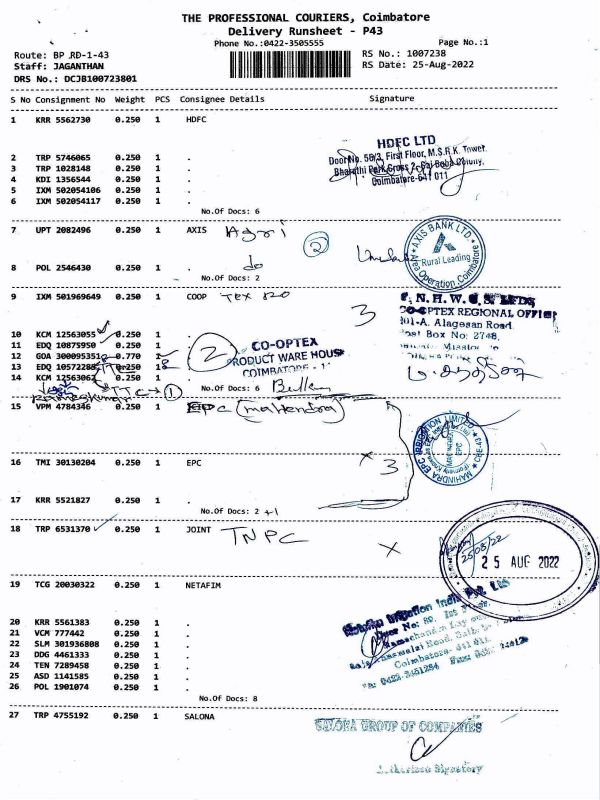 THE PROFESSIONAL COURIERS, Coimbatore
Delivery Runsheet - P43
Phone No.:0422-3505555
Page No.:1
Route: BP RD-1-43
RS No.: 1007238
Staff: JAGANTHAN
RS Date: 25-Aug-2022
DRS No.: DCJB100723801
S No Consignment No Weight PCS Consignee Details Signature
1 KRR 5562730 0.250 1 HDFC
HDFC LTD
Door No. 50/3, First Floor, M.S.R.K. Tower,
Bharathi Park Cross 2, Sai Baba Colony,
Coimbatore-641 011
2 TRP 5746065 0.250 1 .
3 TRP 1028148 0.250 1 .
4 KDI 1356544 0.250 1 .
5 IXM 502054106 0.250 1 .
6 IXM 502054117 0.250 1 .
No.Of Docs: 6
7 UPT 2082496 0.250 1 AXIS Agri
2
AXIS BANK LTD.
Rural Leading
Area Operation, Coimbatore
8 POL 2546430 0.250 1 . do
No.Of Docs: 2
9 IXM 501969649 0.250 1 COOP Tex
3
CO-OPTEX REGIONAL OFFICE
101-A. Alagesan Road.
Post Box No: 2748,
10 KCM 12563055 0.250 1 .
11 EDQ 10875950 0.250 1 .
12 GOA 300095351 0.770 1 .
13 EDQ 10572285 0.250 1 .
14 KCM 1256306 0.250 1 .
2
CO-OPTEX
PRODUCT WARE HOUSE
COIMBATORE - 11
No.Of Docs: 6
TTC → 1
15 VPM 4784346 0.250 1 EPC (Mahendra)
MAHINDRA EPC IRRIGATION LIMITED
EPC
16 TMI 30130204 0.250 1 EPC
× 3
17 KRR 5521827 0.250 1 .
No.Of Docs: 2 +1
18 TRP 6531370 0.250 1 JOINT TNPC
×
25/08/22
25 AUG 2022
19 TCG 20030322 0.250 1 NETAFIM
Netafim Irrigation India Pvt. Ltd
Door No: 89, 1st Floor,
Ramachandra Layout
Coimbatore-641 011
20 KRR 5561383 0.250 1 .
21 VCM 777442 0.250 1 .
22 SLM 301936808 0.250 1 .
23 DDG 4461333 0.250 1 .
24 TEN 7289458 0.250 1 .
25 ASD 1141585 0.250 1 .
26 POL 1901074 0.250 1 .
No.Of Docs: 8
27 TRP 4755192 0.250 1 SALONA
SALONA GROUP OF COMPANIES
Authorised Signatory